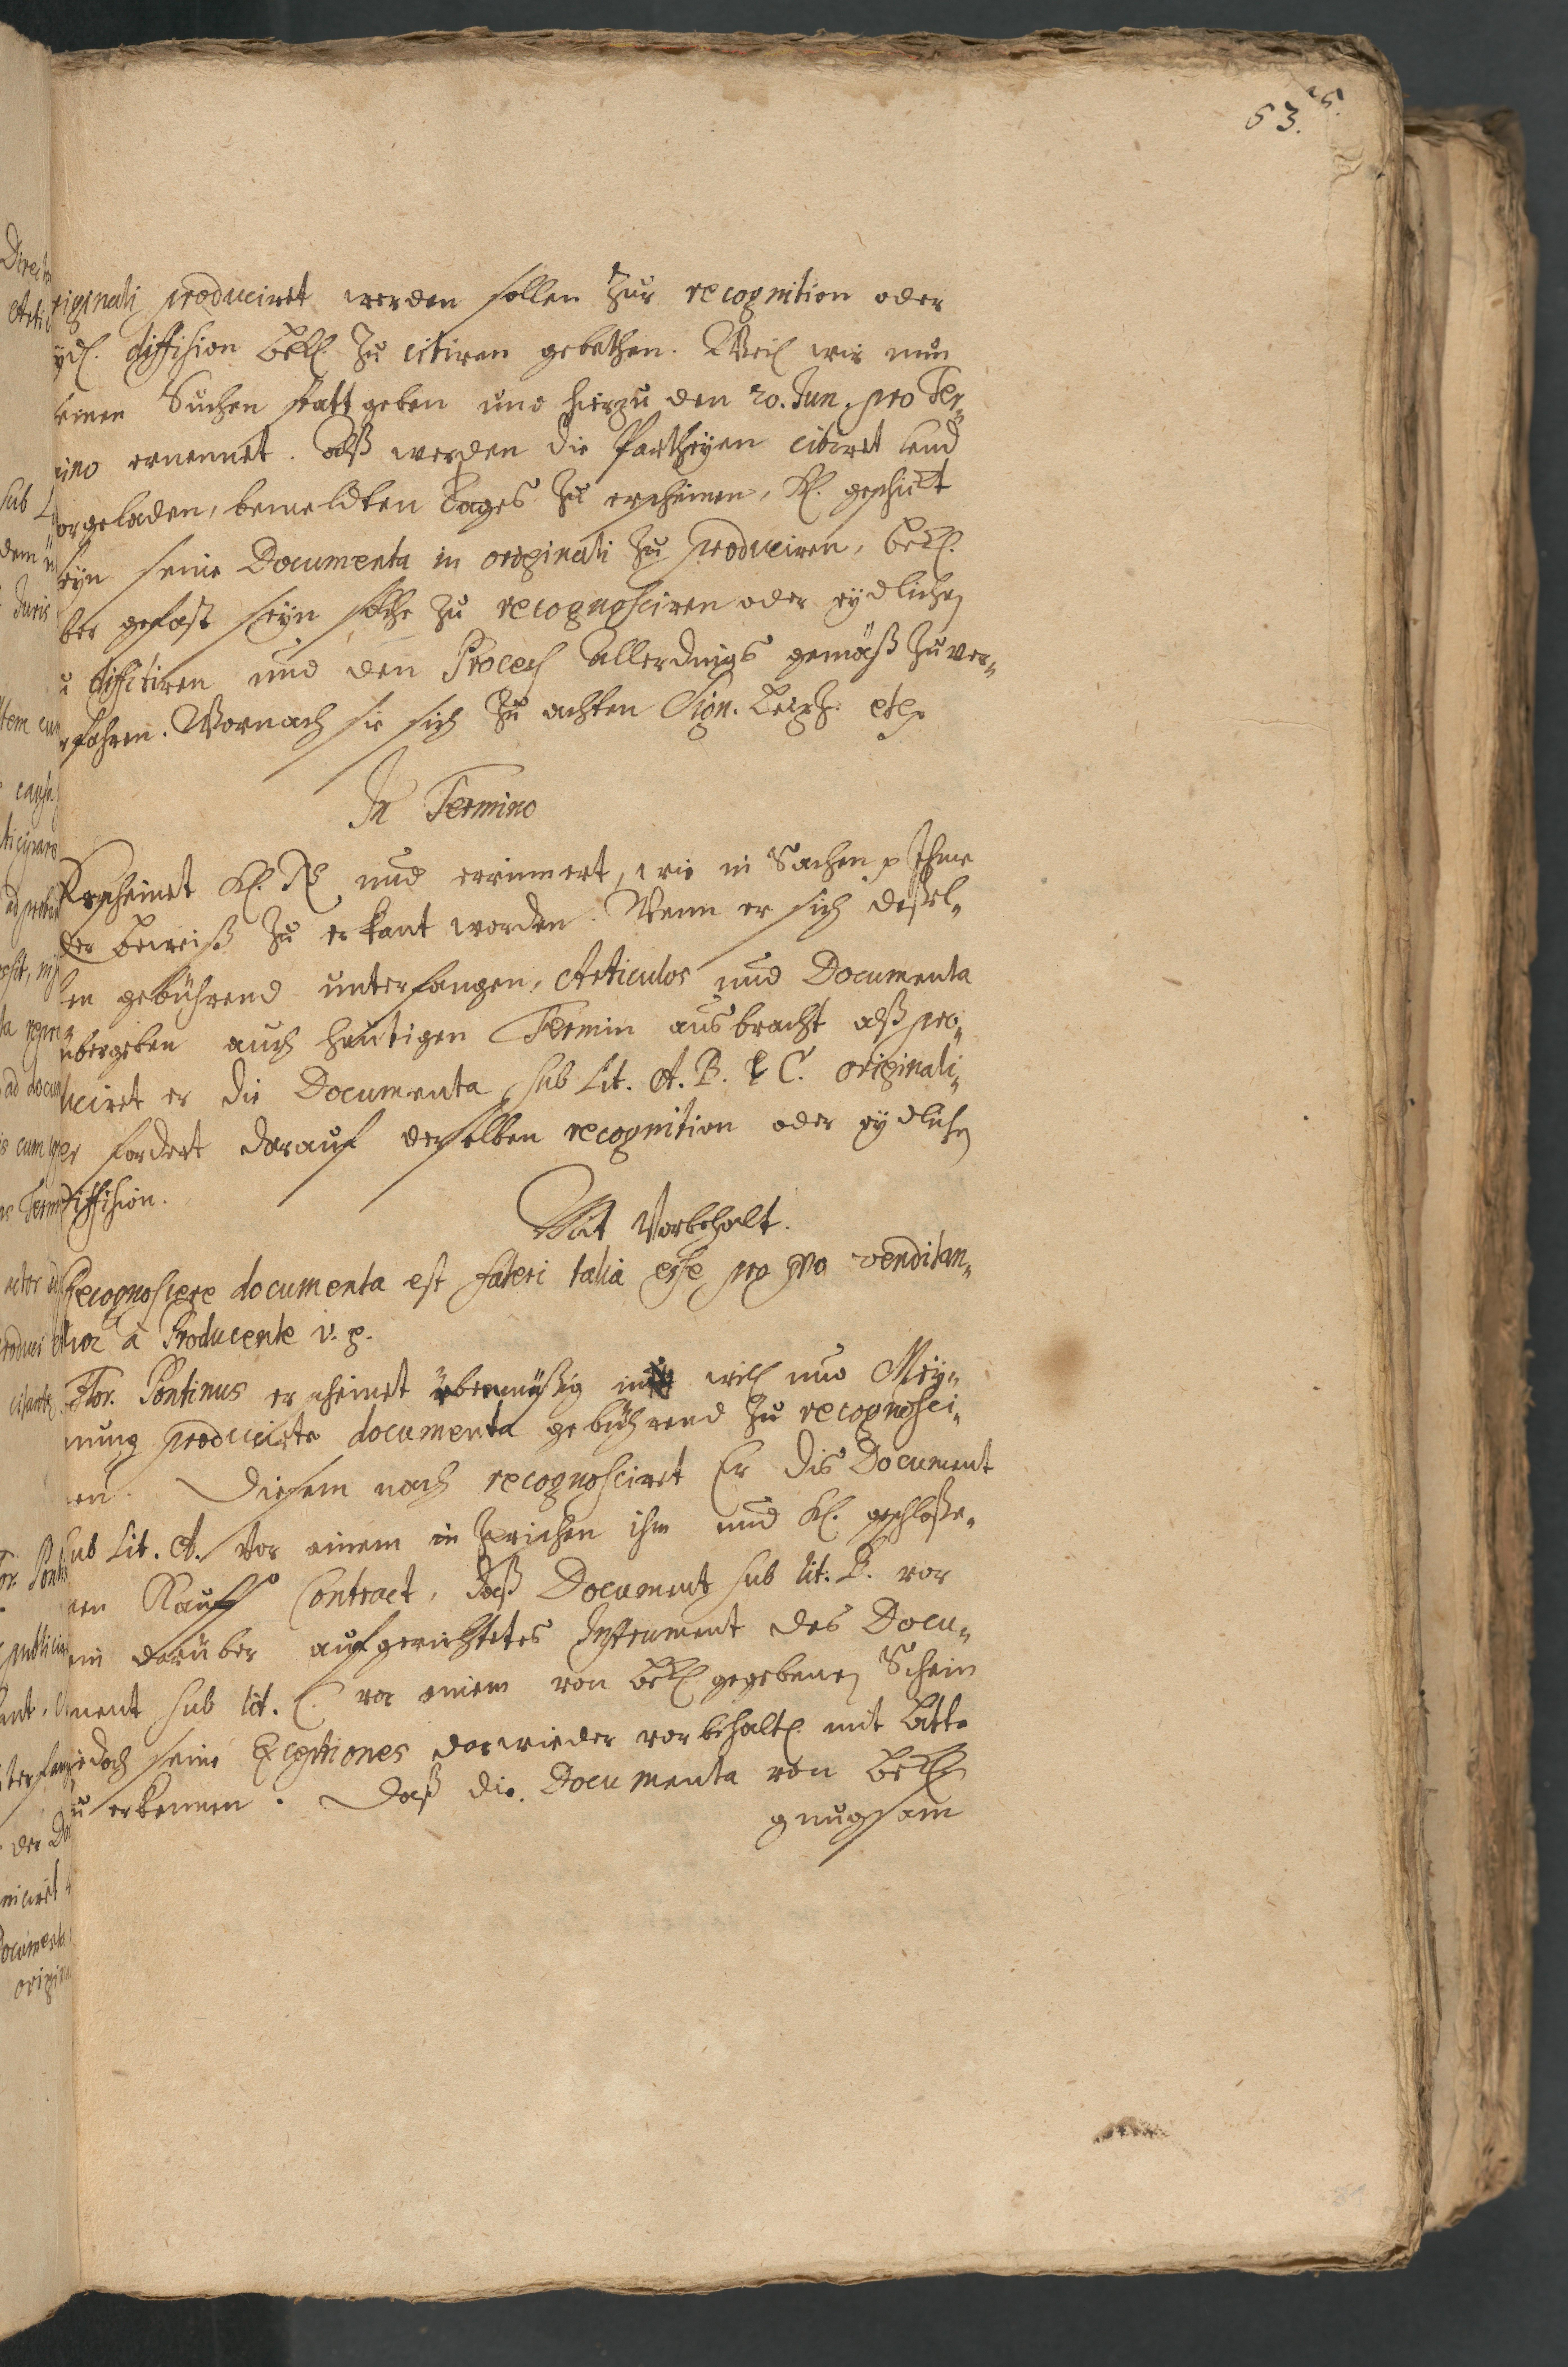 53. 25.
riginali produciret werden sollen zur recognition oder
ydl. diffision Bekl. zu citiren gebethen. Weil wir nun
seinen Suchen statt geben und hierzu den 20. Jun. pro Ter-
mino ernennet. Alß werden die Partheyen citiret und
vorgeladen, bemeldten Tages zu erscheinen, Kl. geschickt
seyn seine Documenta in originali zu produciren, Bekl.
ber gefast seyn solche zu recognosciren oder eydlichen
u diffitiren und den Process allerdings gemäß zu ver-
fahren. Wornach sie sich zu achten Sign. Leipz. etc.
In Termino
Erscheinet Kl. und erinnert, wie in Sachen p Ihme
der Beweiß zu erkant worden. Wenn er sich deßel-
ben gebührend unterfangen, Articulos und Documenta
übergeben auch heutigen Termin ausbracht alß pro-
duciret er die Documenta sub Lit. A. B. & C. originali-
er fordert darauf derselben recognition oder eydliche
Diffision.
Mit Vorbehalt.
Recognoscere documenta est fateri talia esse pro quo venditan-
tur à Producente v. g.
Flor. Pontinus erscheinet übermüßig will und Mey-
nung producirte documenta gebührend zu recognosci-
ren. Diesem nach recognosciret Er dis Document
sub Lit. A. vor einem in zwischen ihm und Kl. geschloße-
nen Kauff Contract, daß Document sub lit. B. vor
ein darüber aufgerichtetes Instrument des Docu-
ment sub lit. C. vor einem von Bekl. gegebenen Schein
iedoch seine Exceptiones darwieder vorbehaltl. mit Bitte
zu erkennen. Daß die Documenta von Bekl.
gnugsam